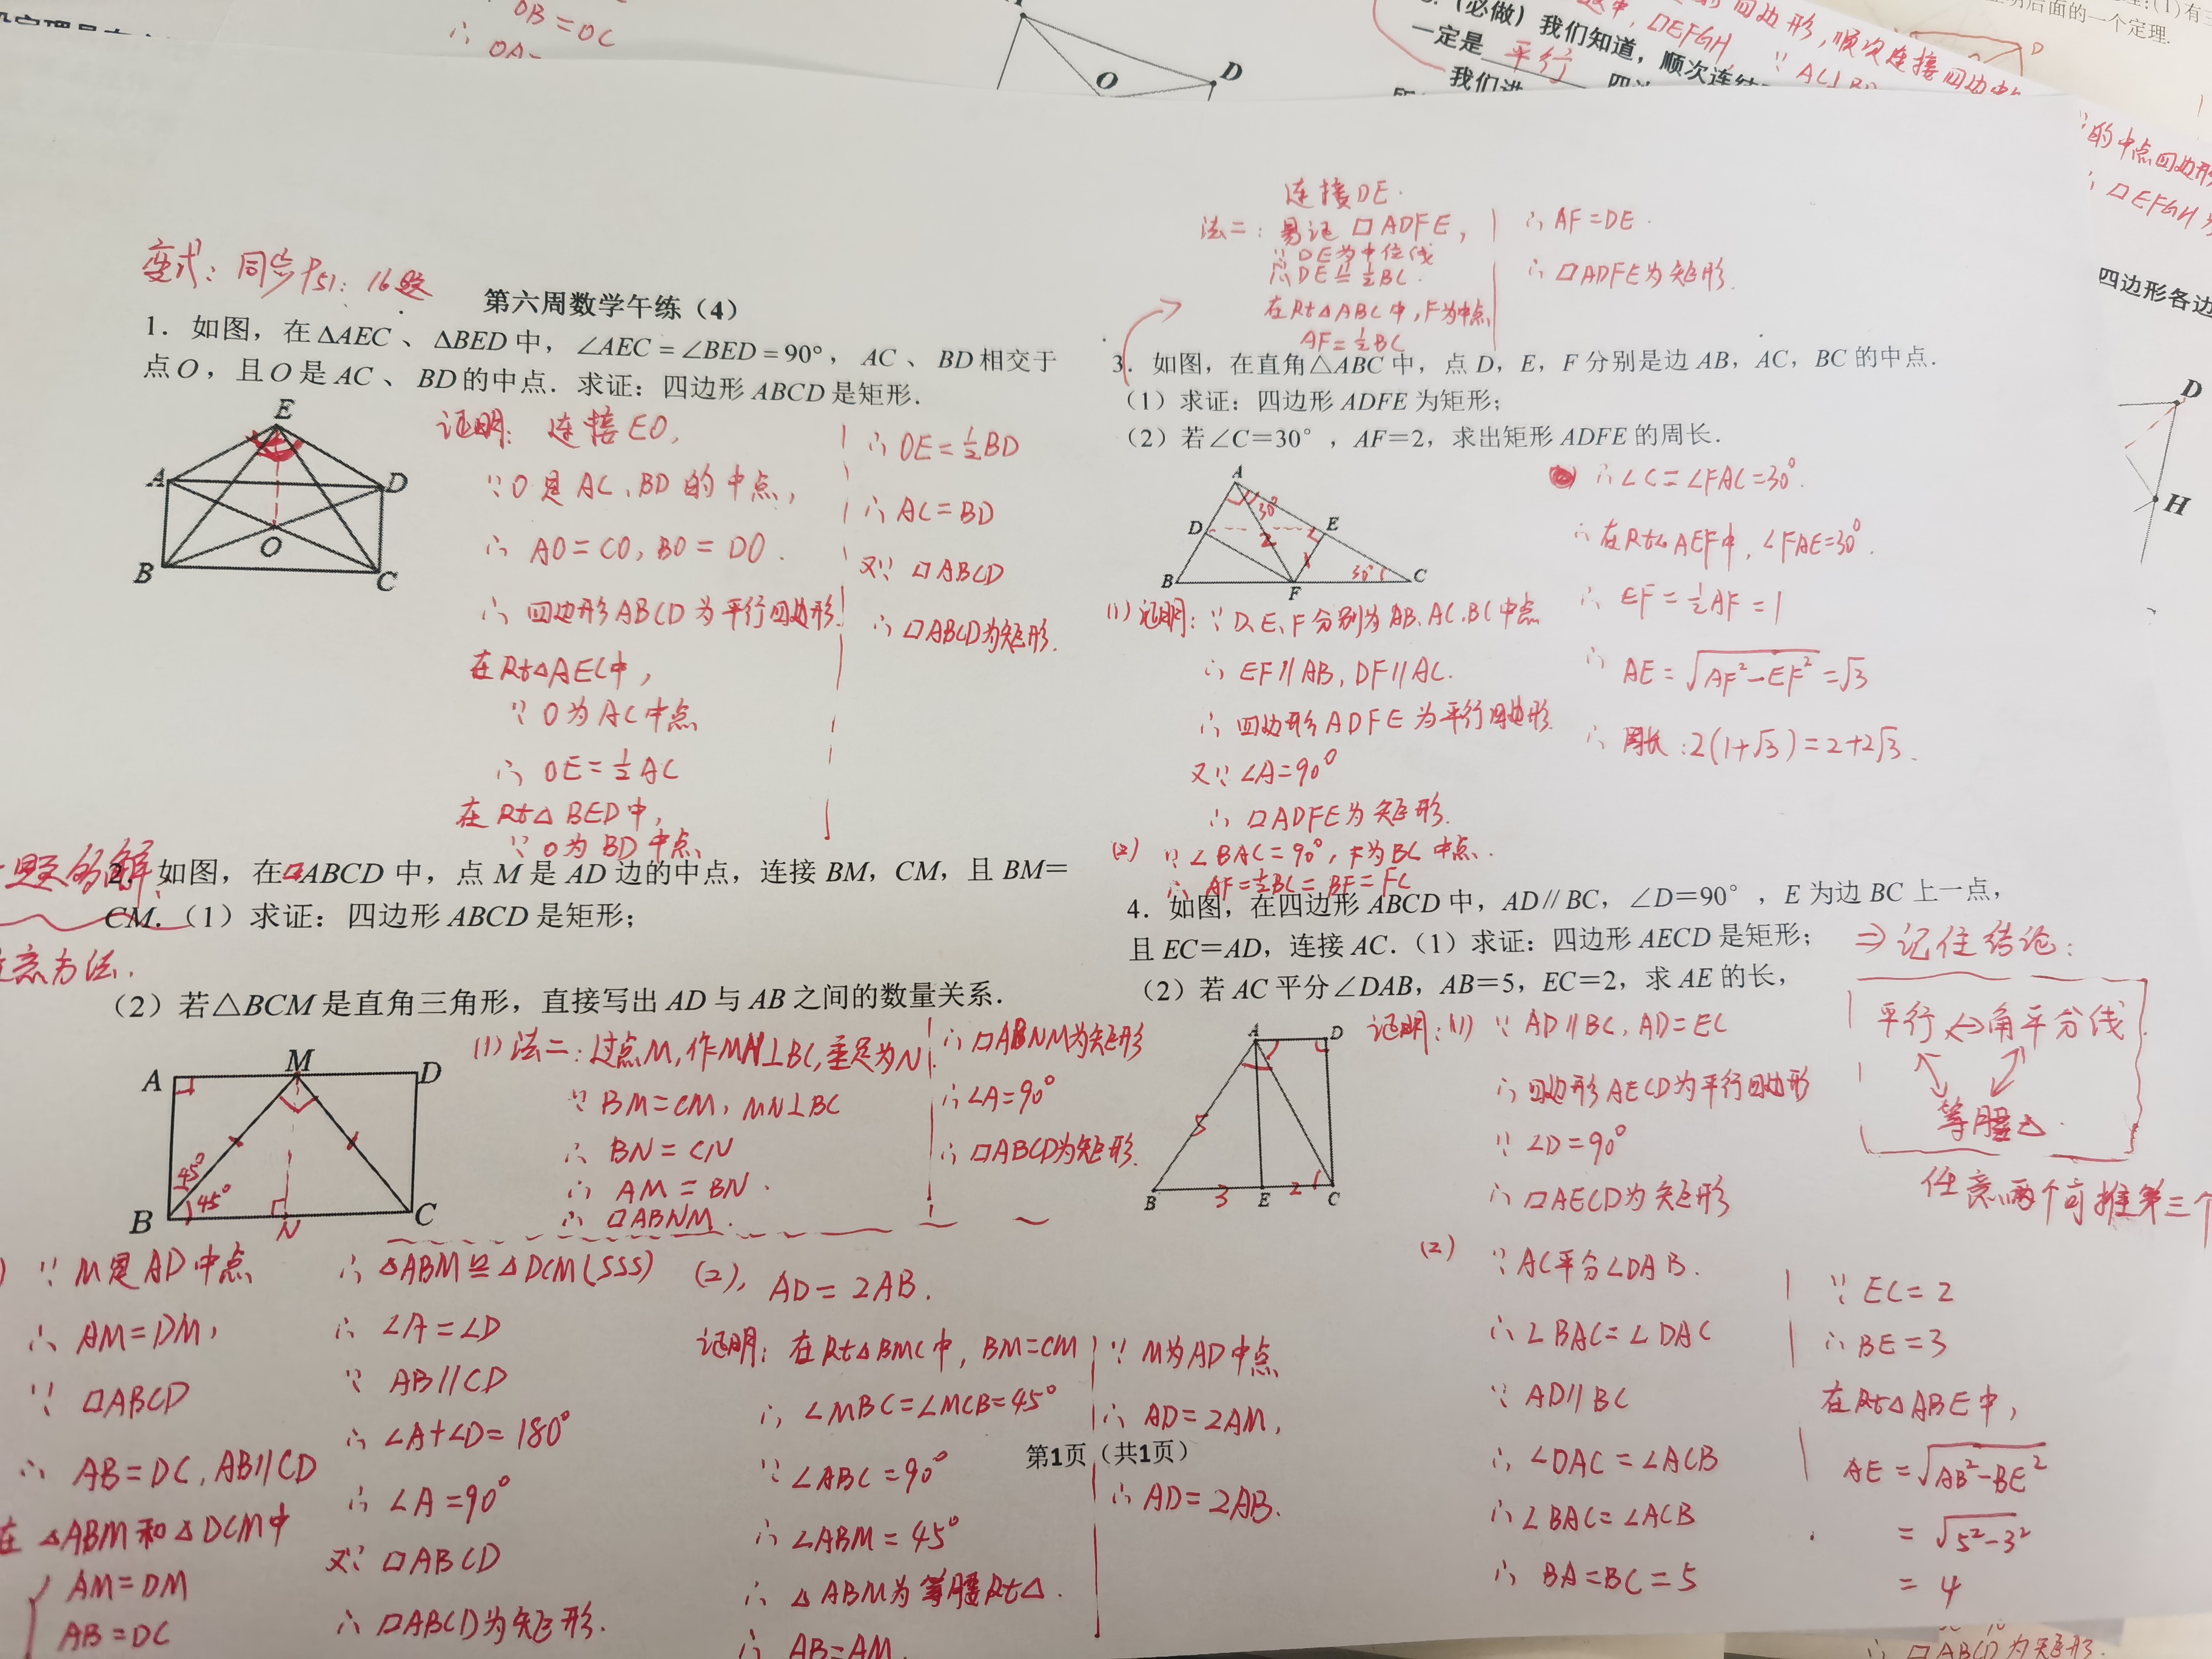 OB=OC
∴ OA=
O
D
(必做)我们知道，顺次连结
一定是 平行 四边
我们进
四边形，顺次连接四边中
□EFGH,
∵ AC⊥BD
(1)有三
明后面的一个定理.
D
的中点四边形
∴ □EFGH
四边形各边
D
H
变式：同步P51：16题
第六周数学午练（4）
1．如图，在△AEC、△BED中，∠AEC=∠BED=90°，AC、BD相交于
点O，且O是AC、BD的中点．求证：四边形ABCD是矩形．
E
A
D
O
B
C
证明：连接EO,
∵O是AC、BD的中点,
∴ AO=CO, BO=DO.
∴ 四边形ABCD为平行四边形.
在Rt△AEC中,
∵ O为AC中点
∴ OE=½AC
在Rt△BED中,
∵ O为BD中点
∴ OE=½BD
∴ AC=BD
又∵ □ABCD
∴ □ABCD为矩形.
题的解
意方法.
2．如图，在□ABCD中，点M是AD边的中点，连接BM，CM，且BM=
CM．（1）求证：四边形ABCD是矩形；
（2）若△BCM是直角三角形，直接写出AD与AB之间的数量关系．
A
M
D
45°
45°
B
N
C
(1)法二：过点M,作MN⊥BC,垂足为N
∵ BM=CM, MN⊥BC
∴ BN=CN
∴ AM=BN.
∴ □ABNM.
∴□ABNM为矩形
∴∠A=90°
∴□ABCD为矩形.
∵ M是AD中点
∴ AM=DM,
∵ □ABCD
∴ AB=DC, AB∥CD
在△ABM和△DCM中
AM=DM
AB=DC
∴ △ABM≌△DCM(SSS)
∴ ∠A=∠D
∵ AB∥CD
∴ ∠A+∠D=180°
∴ ∠A=90°
又∵ □ABCD
∴ □ABCD为矩形.
(2), AD=2AB.
证明：在Rt△BMC中, BM=CM
∴ ∠MBC=∠MCB=45°
∵ ∠ABC=90°
∴ ∠ABM=45°
∴ △ABM为等腰Rt△.
∴ AB=AM.
∵ M为AD中点
∴ AD=2AM,
∴ AD=2AB.
连接DE.
法二：易证□ADFE,
∵ DE为中位线
∴ DE∥=½BC.
在Rt△ABC中,F为中点
AF=½BC
∴ AF=DE.
∴ □ADFE为矩形.
3．如图，在直角△ABC中，点D，E，F分别是边AB，AC，BC的中点．
（1）求证：四边形ADFE为矩形；
（2）若∠C=30°，AF=2，求出矩形ADFE的周长．
A
30°
D
E
2
1
30°
B
F
C
(1)证明：∵ D、E、F分别为AB、AC、BC中点
∴ EF∥AB, DF∥AC.
∴ 四边形ADFE为平行四边形.
又∵ ∠A=90°
∴ □ADFE为矩形.
(2) ∵ ∠BAC=90°, F为BC中点.
∴ AF=½BC=BF=FC
∴ ∠C=∠FAC=30°.
∴ 在Rt△AEF中, ∠FAE=30°.
∴ EF=½AF=1
∴ AE=√(AF²-EF²)=√3
∴ 周长：2(1+√3)=2+2√3.
4．如图，在四边形ABCD中，AD∥BC，∠D=90°，E为边BC上一点，
且EC=AD，连接AC．（1）求证：四边形AECD是矩形；
（2）若AC平分∠DAB，AB=5，EC=2，求AE的长，
A
D
5
B
3
E
2
C
⇒记住结论：
平行⇔角平分线
等腰△.
任意两个可推第三个
证明：(1) ∵ AD∥BC, AD=EC
∴ 四边形AECD为平行四边形
∵ ∠D=90°
∴ □AECD为矩形
(2) ∵ AC平分∠DAB.
∴ ∠BAC=∠DAC
∵ AD∥BC
∴ ∠DAC=∠ACB
∴ ∠BAC=∠ACB
∴ BA=BC=5
∵ EC=2
∴ BE=3
在Rt△ABE中,
AE=√(AB²-BE²)
=√(5²-3²)
=4
第1页（共1页）
∴ □ABCD为矩形.